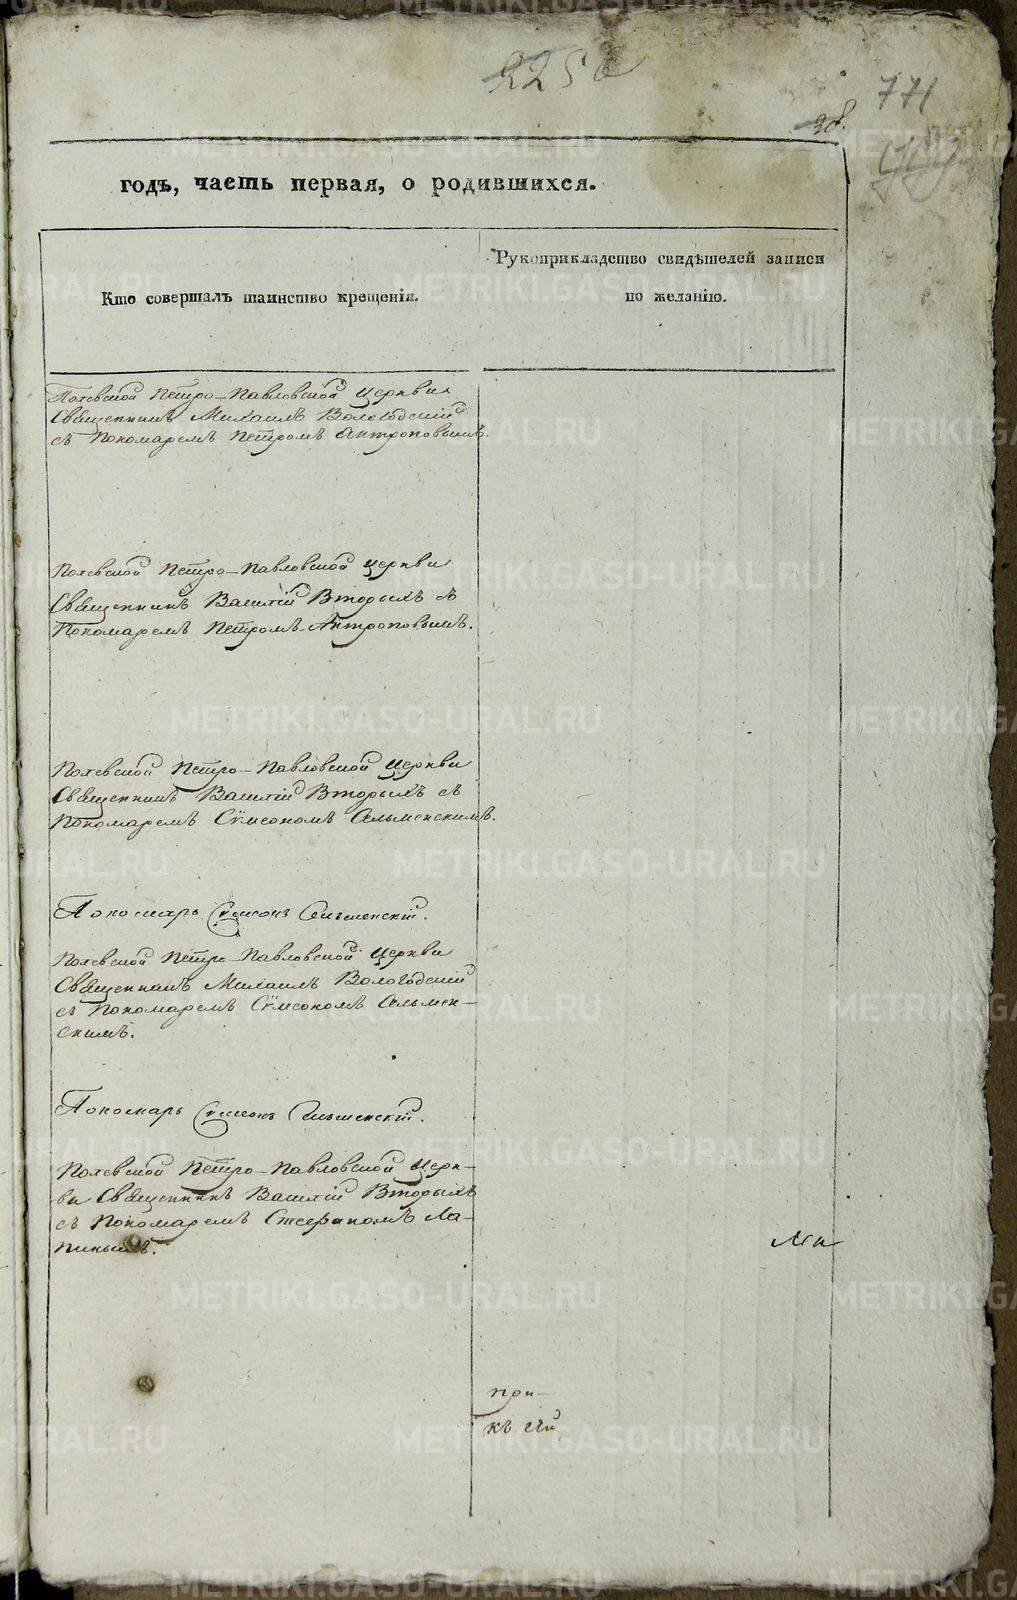 225 б
771
28.
годъ, часть первая, о родившихся.
Кто совершалъ таинство крещенія.
Рукоприкладство свидѣтелей записи
по желанію.
Полевской Петро-Павловской Церкви
Священникъ Михаилъ Вологодскій
съ Пономаремъ Петромъ Антроповымъ.
Полевской Петро-Павловской Церкви
Священникъ Василій Вторыхъ съ
Пономаремъ Петромъ Антроповымъ.
Полевской Петро-Павловской Церкви
Священникъ Василій Вторыхъ съ
Пономаремъ Сѵмеономъ Сельменскимъ.
Пономарь Сѵмеонъ Сельменскій.
Полевской Петро-Павловской Церкви
Священникъ Михаилъ Вологодскій
съ Пономаремъ Сѵмеономъ Сельмен-
скимъ.
Пономарь Сѵмеонъ Сельменскій.
Полевской Петро-Павловской Церк-
ви Священникъ Василій Вторыхъ
съ Пономаремъ Стефаномъ Ла-
пинымъ.
при-
къ сей
METRIKI.GASO-URAL.RU